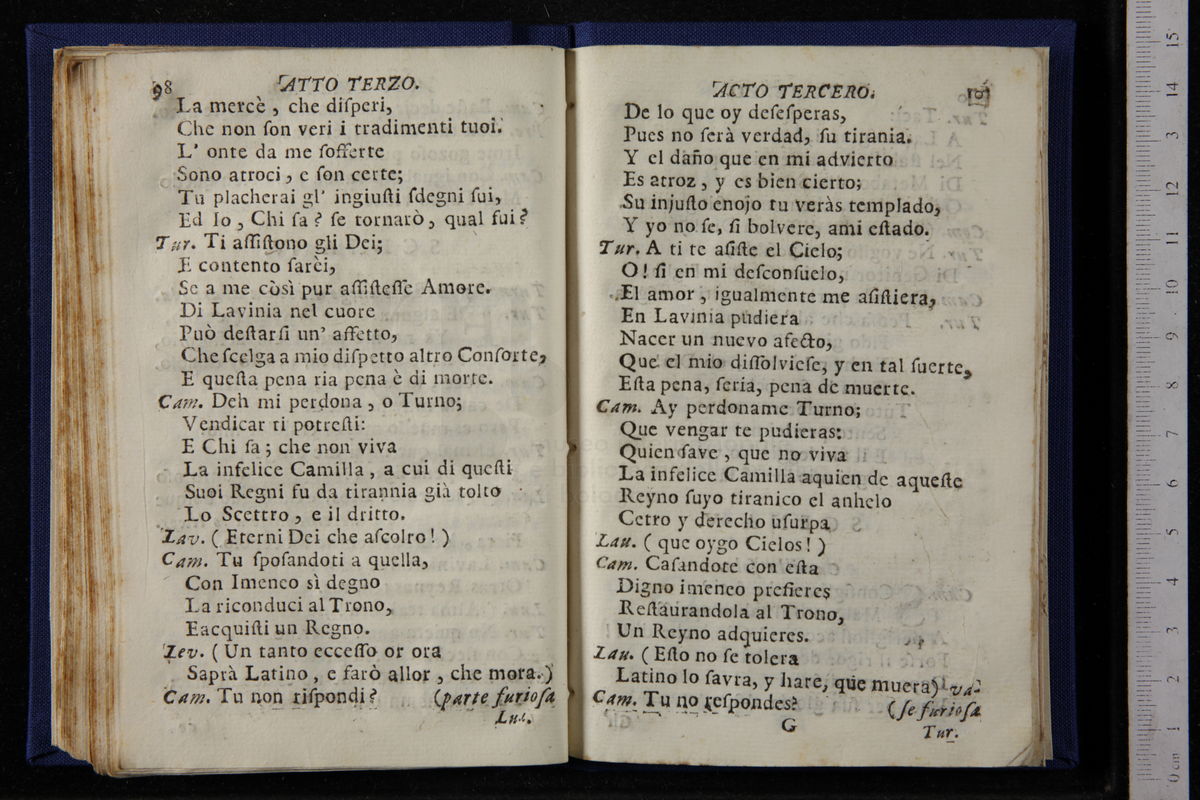 98 ATTO TERZO.
La mercè, che diſperi,
Che non ſon veri i tradimenti tuoi.
L' onte da me ſofferte
Sono atroci, e ſon certe;
Tu placherai gl' ingiuſti ſdegni ſui,
Ed Io, Chi ſa? ſe tornarò, qual fui?
Tur. Ti aſſiſtono gli Dei;
E contento ſarèi,
Se a me còsì pur aſſiſteſſe Amore.
Di Lavinia nel cuore
Può deſtarſi un' affetto,
Che ſcelga a mio diſpetto altro Conſorte,
E queſta pena ria pena è di morte.
Cam. Deh mi perdona, o Turno;
Vendicar ti potreſti:
E Chi ſa; che non viva
La infelice Camilla, a cui di queſti
Suoi Regni fu da tirannia già tolto
Lo Scettro, e il dritto.
Lav. (Eterni Dei che aſcolto!)
Cam. Tu ſpoſandoti a quella,
Con Imeneo sì degno
La riconduci al Trono,
Eacquiſti un Regno.
Lev. (Un tanto ecceſſo or ora
Saprà Latino, e farò allor, che mora.)
Cam. Tu non riſpondi? (parte furioſa
Lui.
ACTO TERCERO.
De lo que oy deſeſperas,
Pues no ſerà verdad, ſu tirania.
Y el daño que en mi advierto
Es atroz, y es bien cierto;
Su injuſto enojo tu veràs templado,
Y yo no ſe, ſi bolvere, ami eſtado.
Tur. A ti te aſiſte el Cielo;
O! ſi en mi deſconſuelo,
El amor, igualmente me aſiſtiera,
En Lavinia pudiera
Nacer un nuevo afecto,
Que el mio diſſolvieſe, y en tal ſuerte,
Eſta pena, ſeria, pena de muerte.
Cam. Ay perdoname Turno;
Que vengar te pudieras:
Quien ſave, que no viva
La infelice Camilla aquien de aqueſte
Reyno ſuyo tiranico el anhelo
Cetro y derecho uſurpa
Lau. (que oygo Cielos!)
Cam. Caſandote con eſta
Digno imeneo prefieres
Reſtaurandola al Trono,
Un Reyno adquieres.
Lau. (Eſto no ſe tolera
Latino lo ſavra, y hare, que muera) va-
Cam. Tu no reſpondes? (ſe furioſa
G Tur.